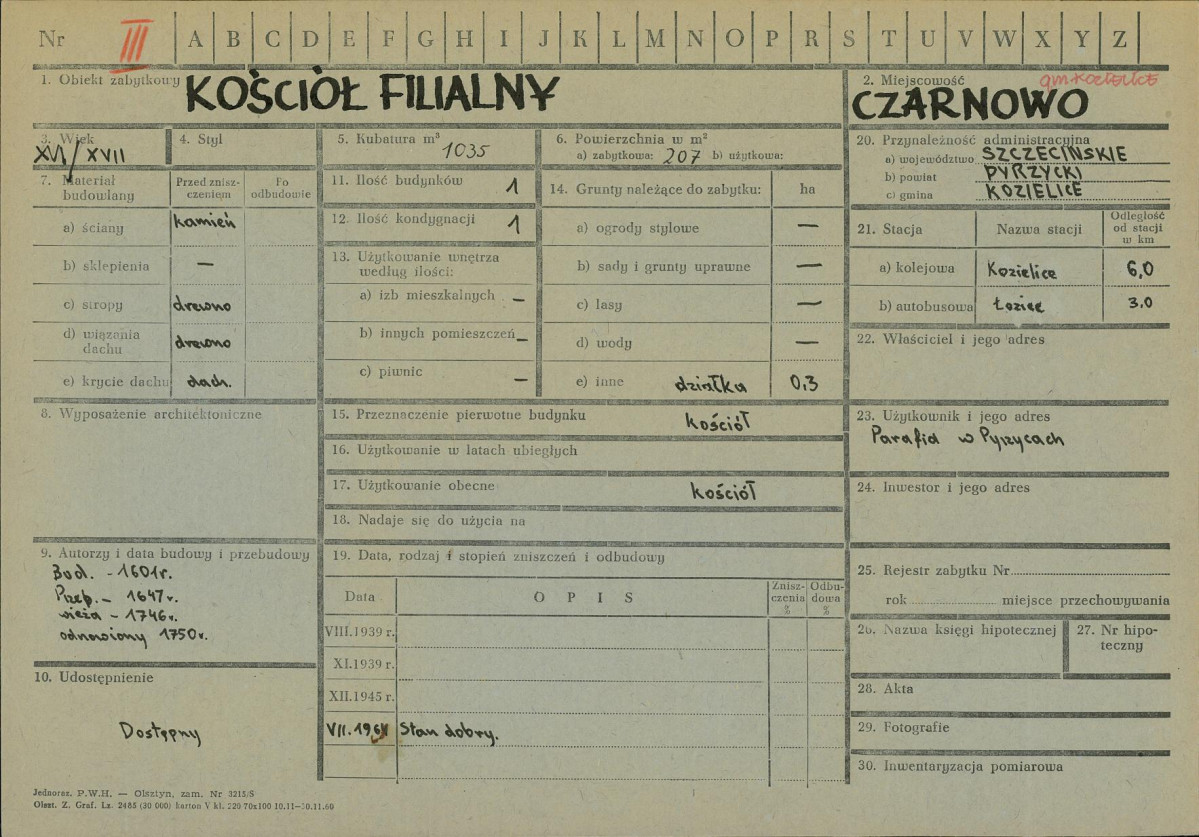 Nr III A B C D E F G H I J K L M N O P R S T U V W X Y Z
1. Obiekt zabytkowy KOŚCIÓŁ FILIALNY
2. Miejscowość gm. KOZIELICE
CZARNOWO
3. Wiek XVI/XVII
4. Styl
5. Kubatura m³ 1035
6. Powierzchnia w m²
a) zabytkowa: 207 b) użytkowa:
7. Materiał budowlany
Przed zniszczeniem
Po odbudowie
a) ściany kamień
b) sklepienia —
c) stropy drewno
d) wiązania dachu drewno
e) krycie dachu dach.
8. Wyposażenie architektoniczne
9. Autorzy i data budowy i przebudowy
Bud. - 1601r.
Przeb. - 1647r.
wieża - 1746r.
odnowiony 1750r.
10. Udostępnienie
Dostępny
11. Ilość budynków 1
12. Ilość kondygnacji 1
13. Użytkowanie wnętrza według ilości:
a) izb mieszkalnych —
b) innych pomieszczeń —
c) piwnic —
14. Grunty należące do zabytku: ha
a) ogrody stylowe —
b) sady i grunty uprawne —
c) lasy —
d) wody —
e) inne działka 0,3
15. Przeznaczenie pierwotne budynku kościół
16. Użytkowanie w latach ubiegłych
17. Użytkowanie obecne kościół
18. Nadaje się do użycia na
19. Data, rodzaj i stopień zniszczeń i odbudowy
Data OPIS Zniszczenia % Odbudowa %
VIII.1939 r.
XI.1939 r.
XII.1945 r.
VII.196 Stan dobry.
20. Przynależność administracyjna
a) województwo SZCZECIŃSKIE
b) powiat PYRZYCKI
c) gmina KOZIELICE
21. Stacja Nazwa stacji Odległość od stacji w km
a) kolejowa Kozielice 6,0
b) autobusowa 3.0
22. Właściciel i jego adres
23. Użytkownik i jego adres
Parafia w Pyrzycach
24. Inwestor i jego adres
25. Rejestr zabytku Nr
rok miejsce przechowywania
26. Nazwa księgi hipotecznej
27. Nr hipoteczny
28. Akta
29. Fotografie
30. Inwentaryzacja pomiarowa
Jednoraz. P.W.H. — Olsztyn, zam. Nr 3215/S
Olszt. Z. Graf. Lz. 2485 (30 000) karton V kl. 220 70x100 10.11—30.11.60